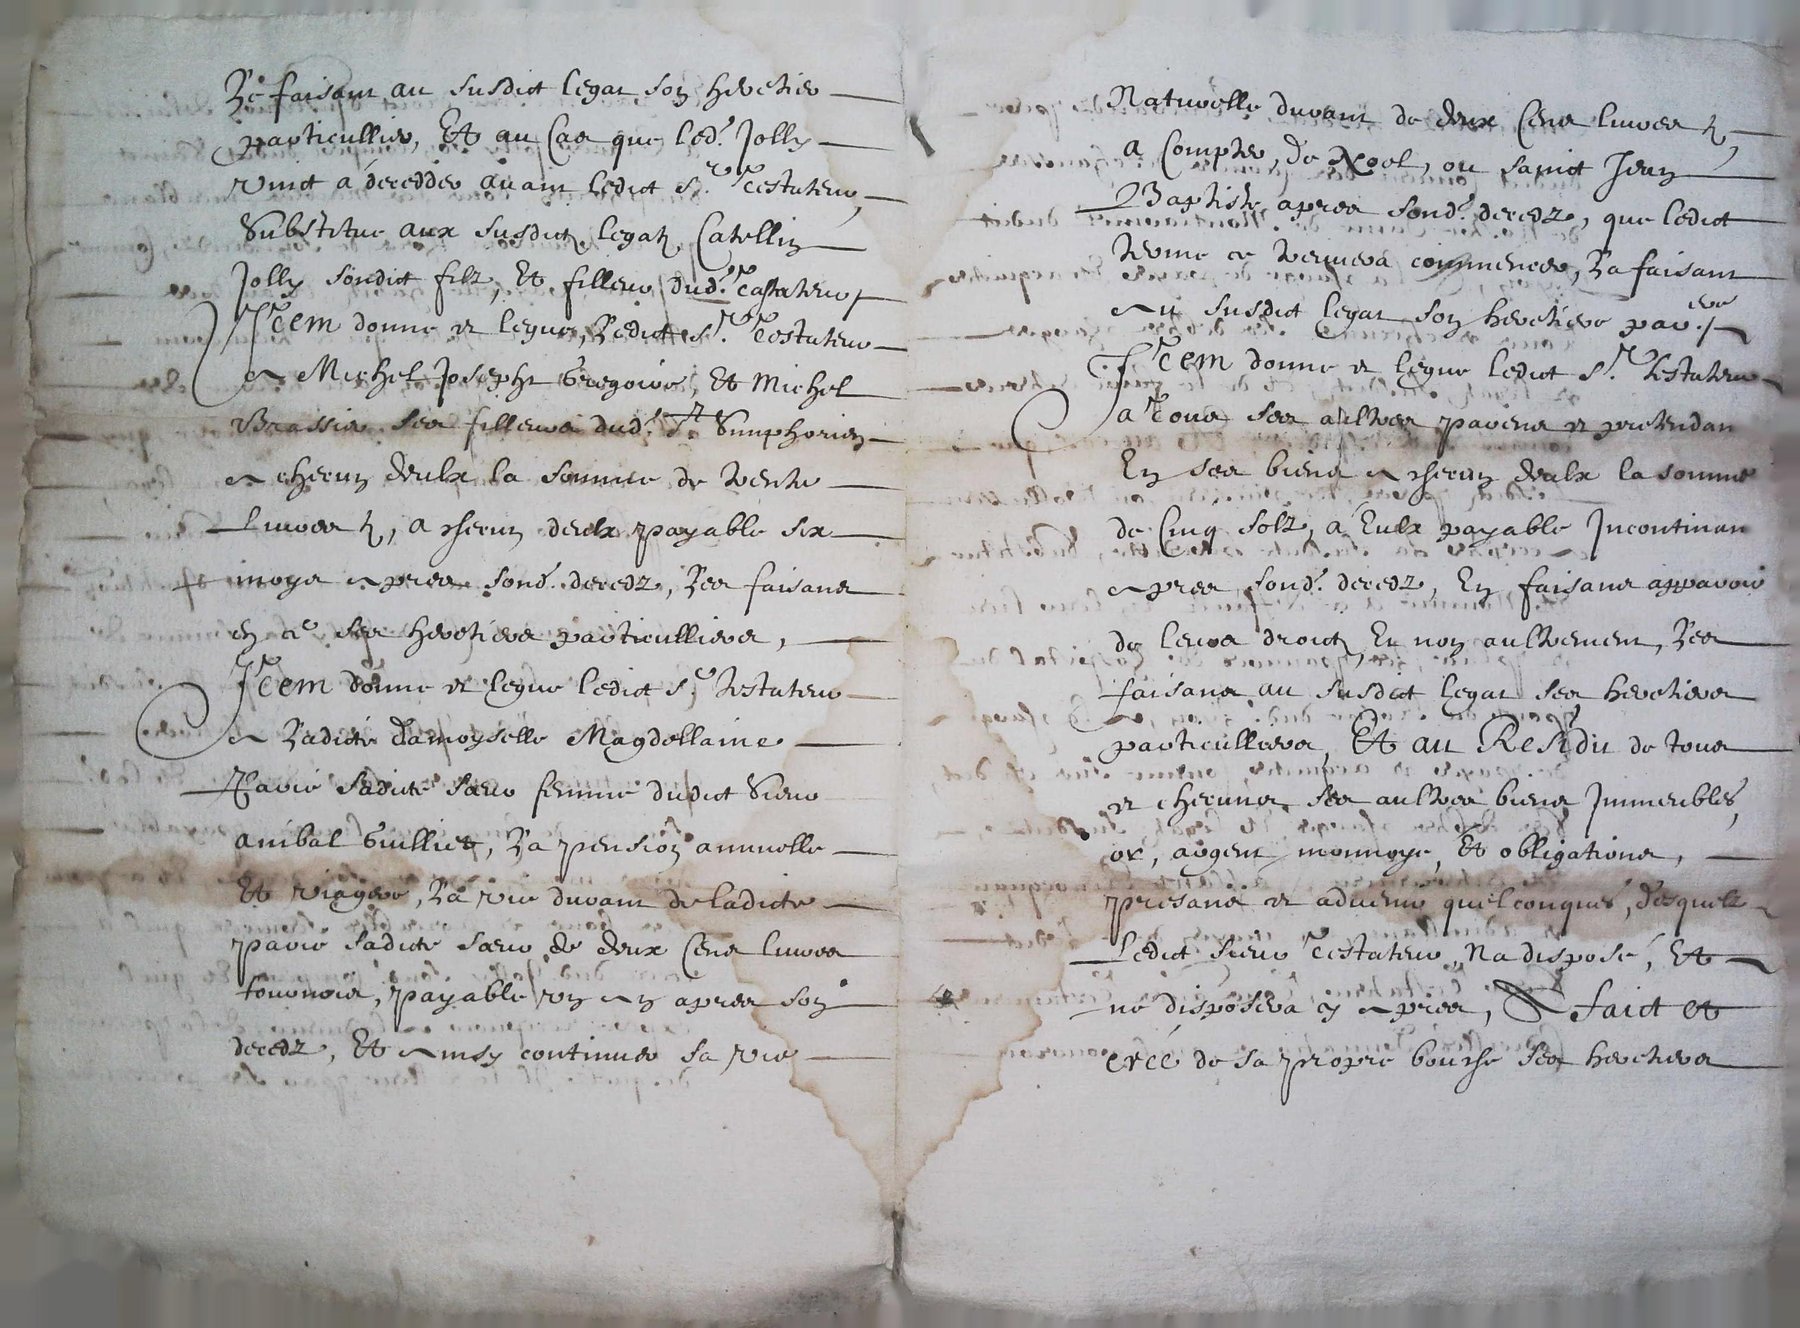 Le faisant au susdict legat son heretier
particullier, Et au Cas que led.t Jolly
vinct a decedder avant ledict s.r Testateur,
Substitue aux susdictz legatz Catellin
Jolly sondict filz, Et filleur dud.t Testateur
Item donne et legue, Ledict s.r Testateur
a Michel Joseph Gregoire, Et Michel
Brassier ses filleurs dud.t St Simphorien
a checun deulx la somme de trente
Livres tz, a checun deulx payable six
moys apres sond.t decedz, Les faisans
en ce ses heretiers particulliers,
Item donne et legue ledict s.r testateur
a Ladicte damoyselle Magdellaine
Pavie sadicte sœur femme dudict Sieur
anibal Guilliet, La pension annuelle
Et viagere, La vie durant de ladicte
pavie sadicte sœur de deux Cens livres
tournois, payable un an apres son
decedz, Et ainsy continuer sa vie
Naturelle durant de deux Cens livres tz,
a Compter, de Noel, ou sainct Jean
Baptiste apres sond.t decedz, que ledict
terme ce treuvera commencer, La faisant
au susdict legat son heretiere par.ere
Item donne et legue ledict s.r testateur
a Tous ses aultres parens et pretendan
En ses biens a checun deulx la somme
de Cinq solz, a Eulx payable Incontinan
apres sond.t decedz, En faisans apparoir
de leurs droictz Et non aultrement, Les
faisans au susdict legat ses heretiers
particulliers, Et au Residu de tous
et checuns ses aultres biens Immeubles,
or, argent monnoyé, Et obligations,
presans et advenir quelconques, desquelz
Ledict sieur Testateur, Na disposé, Et
ne disposera cy apres, A faict et
creé de sa propre bouche ses heretiers